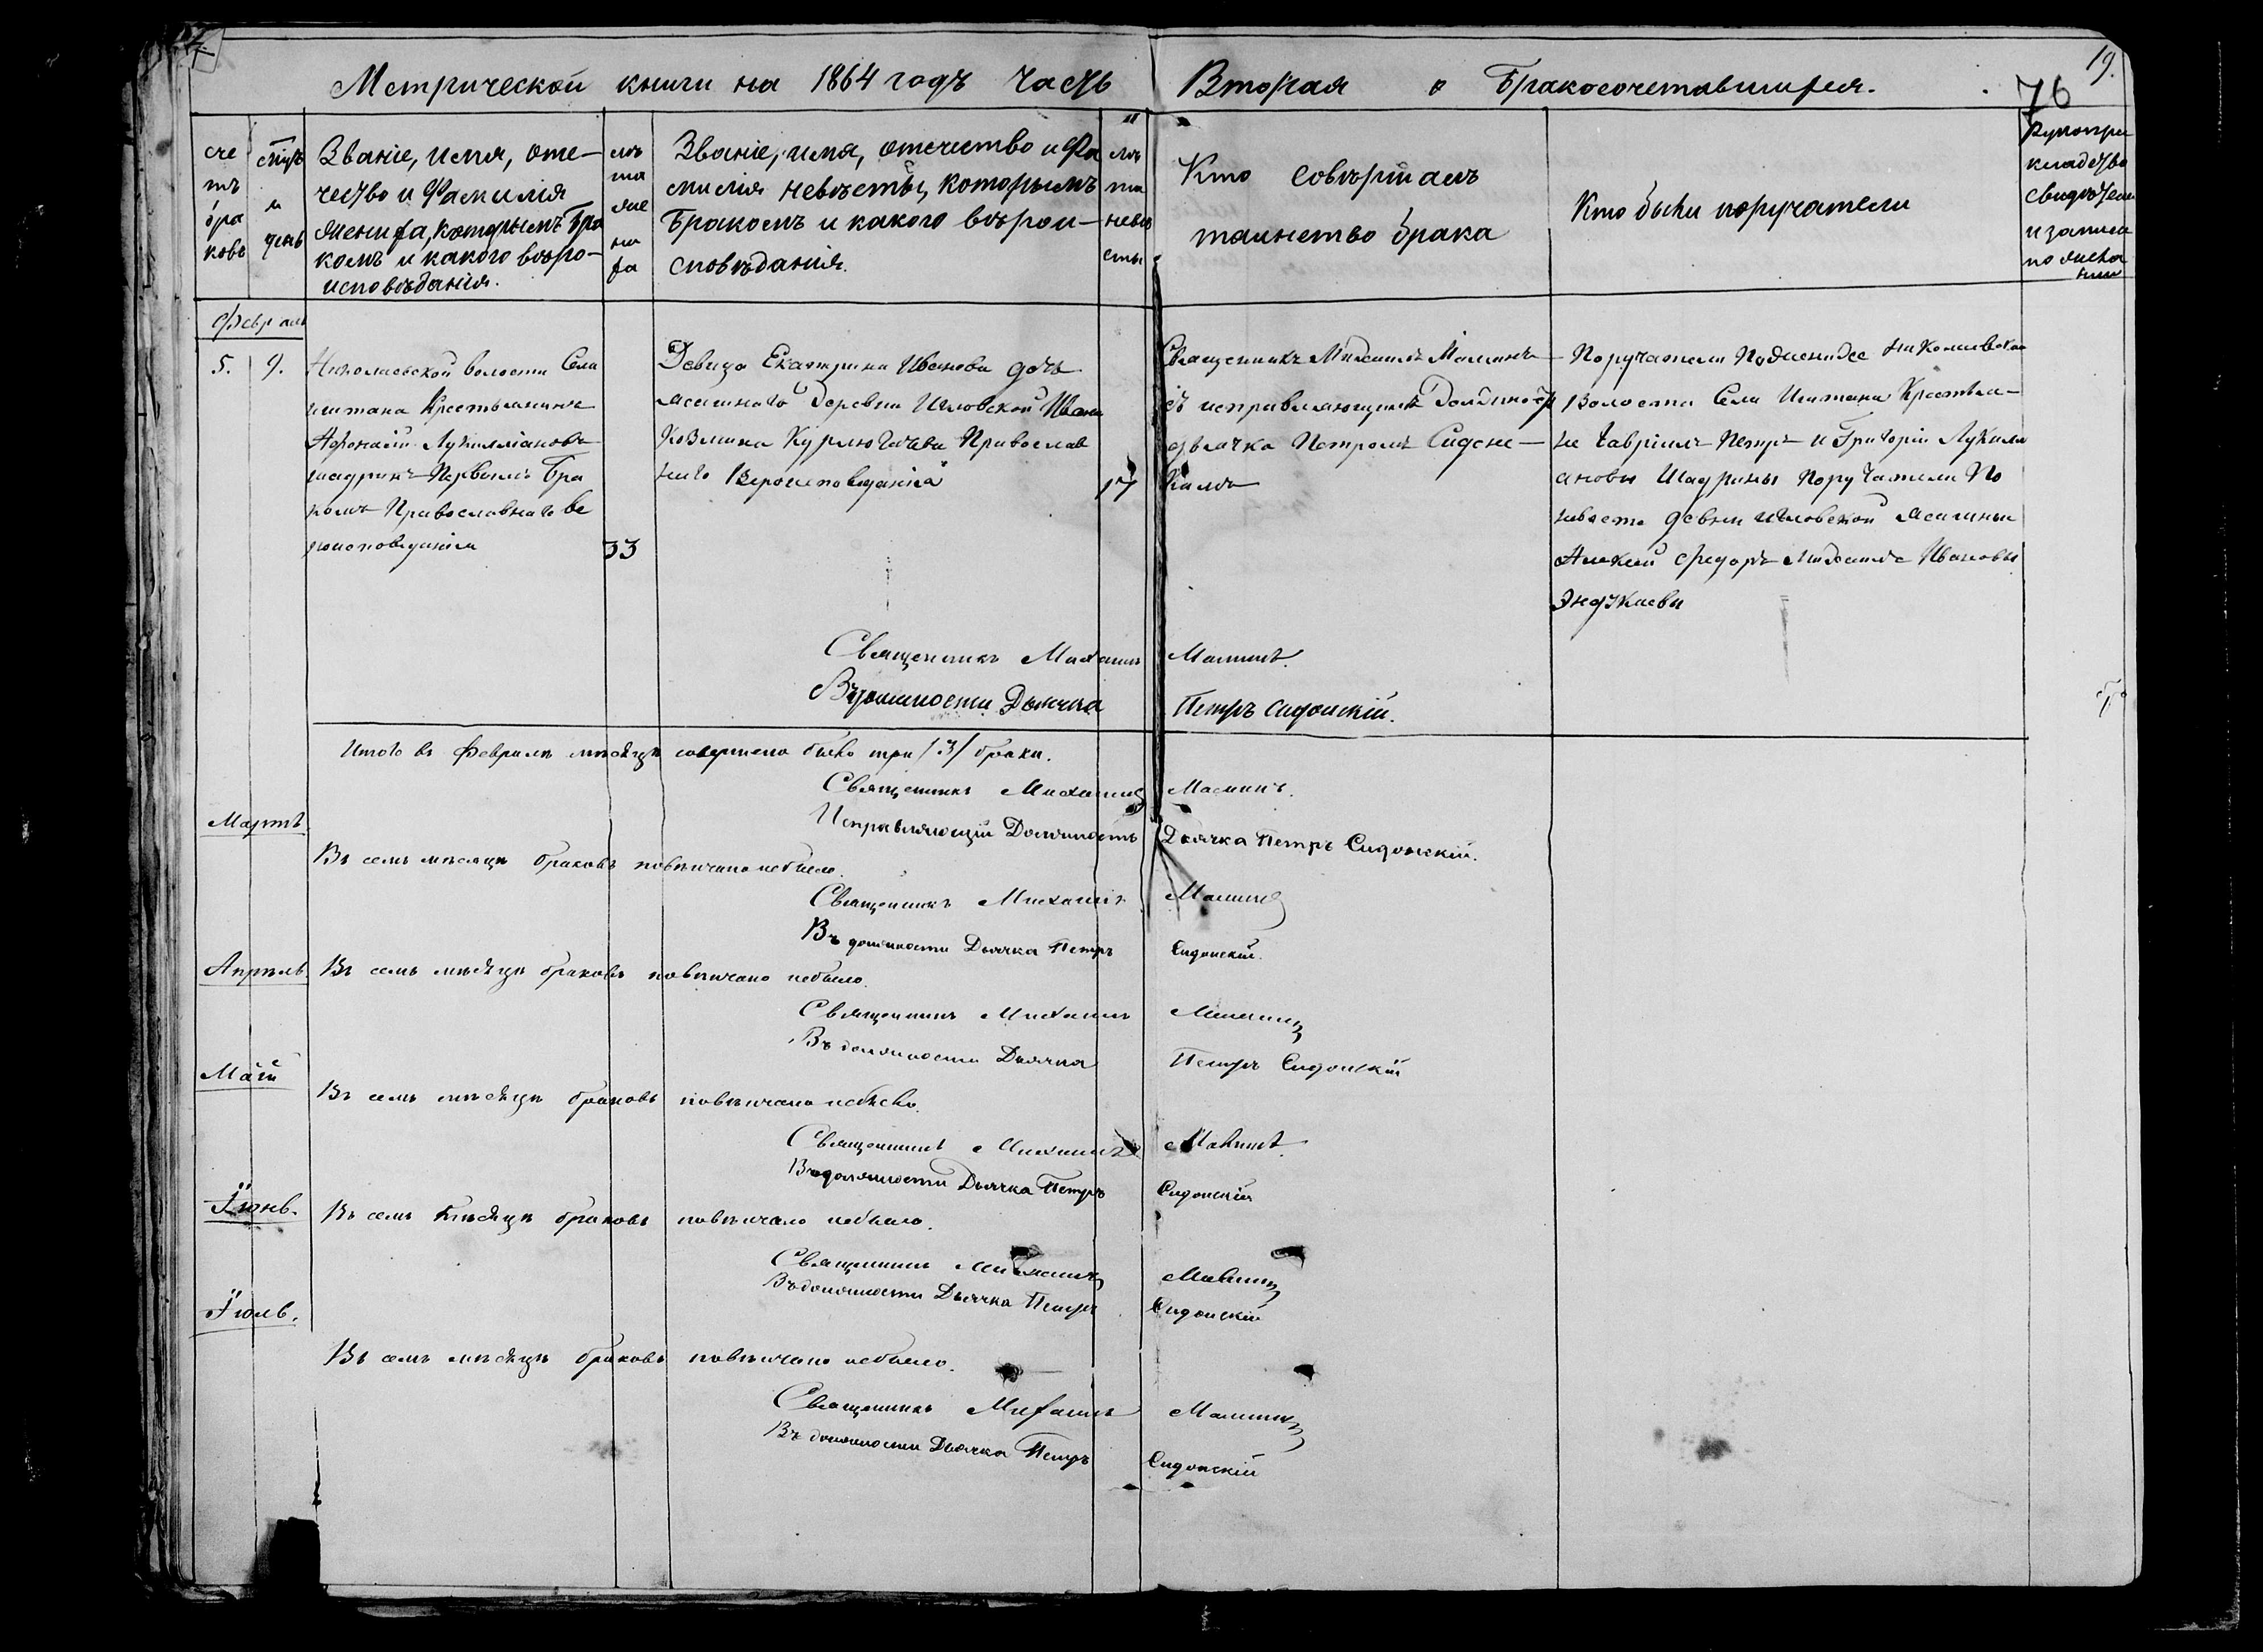 19.
76
Метрической книги на 1864 годъ часть Вторая о Бракосочетавшихся.
сче
тъ
бра
ковъ
м
день
Званіе, имя, оте-
чество и Фамилія
жениха, которымъ бра
комъ и какого вѣро-
исповѣданія.
лѣ
та
же
ни
ха
Званіе, имя, отечество и Фа
милія невѣсты, которымъ
бракомъ и какого вѣрои-
сповѣданія.
лѣ
та
невѣ
сты
Кто совѣршалъ
таинство брака
Кто были поручатели
Рукопри
кладство
свидѣтел
и записи
по желан
нию
Февраль
5. 9.
Николаевской волости Села
иштана Крестьянинъ
Афонасій Лукиліановъ
шадринъ Первымъ Бра
комъ Православнаго ве
роисповеданія
33
Девица Екатирина Иванова дочь
ясашнаго деревни Игловской Ивана
Козмина Курлюгачева Православ
наго Вероисповеданія
17
Священникъ Михаилъ Малинъ
съ исправляющимъ Должность
дьячка Петромъ Сидонс-
кимъ
Поручатели По Женихе Николаевской
Волости Села Иштана Крестья-
не Гавріилъ Петръ и Григорій Лукили
ановы Шадрины Поручатели По
невесте девни игловской ясашныи
Алекей Федоръ Михаилъ Ивановы
Энджаевы
Священникъ Михаилъ Малинъ.
Въ должности Дьячка Петръ Сидонскій.
Итого въ Февралѣ мѣсяцѣ совершено было три /3/ брака.
Священникъ Михаилъ Малинъ.
Исправляющій Должность Дьячка Петръ Сидонскій.
Мартъ.
Въ семъ мѣсяцѣ браковъ повѣнчано небыло.
Священникъ Михаилъ Малинъ
Въ должности Дьячка Петръ Сидонскій.
Апрѣль
Въ семъ мѣсяцѣ браковъ повѣнчано небыло.
Священникъ Михаилъ Малинъ
Въ должности Дьячка Петръ Сидонскій
Май
Въ семъ мѣсяцѣ браковъ повѣнчано небыло.
Священникъ Михаилъ Малинъ.
Въ должности Дьячка Петръ Сидонскій
Іюнь.
Въ семъ мѣсяцѣ браковъ повѣнчано небыло.
Священникъ Михаилъ Малинъ
Въ должности Дьячка Петръ Сидонскій
Іюль.
Въ семъ мѣсяцѣ браковъ повѣнчано небыло.
Священникъ Михаилъ Малинъ
Въ должности Дьячка Петръ Сидонскій